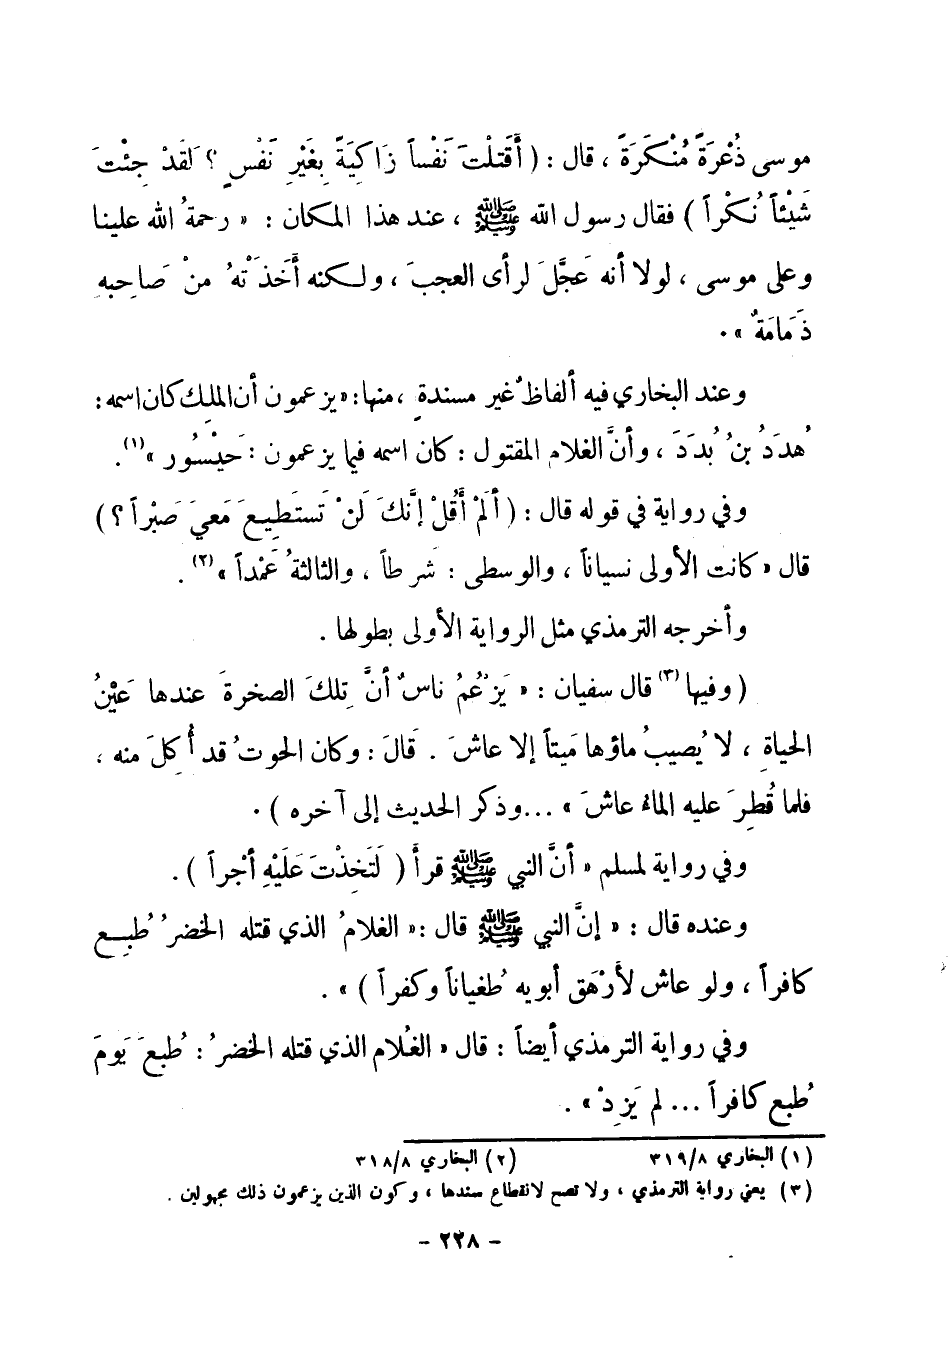 موسى ذُعْرَةً مُنْكَرَةً ، قال : ( أَقَتَلْتَ نَفْساً زَاكِيَةً بِغَيْرِ نَفْسٍ ؟ لَقَدْ جِئْتَ
شَيْئاً نُكْراً ) فقال رسول الله ﷺ ، عند هذا المكان : « رحمةُ الله علينا
وعلى موسى ، لولا أنه عَجَّلَ لرأى العجبَ ، ولكنه أَخَذَتْهُ مِنْ صَاحِبِهِ
ذَمَامَةٌ » .
وعند البخاري فيه ألفاظٌ غير مسندةٍ ، منها: « يزعمون أن الملِكَ كان اسمه :
هُدَدُ بنُ بُدَدَ ، وأنَّ الغلام المقتول : كان اسمه فيما يزعمون : حَيْسُور »(١).
وفي رواية في قوله قال : ( أَلَمْ أَقُلْ إنَّكَ لَنْ تَستَطِيعَ مَعيَ صَبْراً ؟ )
قال « كانت الأولى نسياناً ، والوسطى : شَرطاً ، والثالثةُ عَمْداً »(٢) .
وأخرجه الترمذي مثل الرواية الأولى بطولها .
( وفيها (٣) قال سفيان : « يَزْعُمُ ناسٌ أنَّ تِلكَ الصخرةَ عندها عَيْنُ
الحياةِ ، لا يُصيبُ ماؤها مَيتاً إلا عاشَ . قَالَ : وكان الحوتُ قد أُكِلَ منه ،
فلما قُطِرَ عليه الماءُ عاشَ » ...وذكر الحديث إلى آخره ) .
وفي رواية لمسلم « أنَّ النبي ﷺ قرأَ ( لَتَخِذْتَ عَلَيْهِ أجْراً ) .
وعنده قال : « إنَّ النبي ﷺ قال :« الغلامُ الذي قتله الخضرُ طُبِع
كافراً ، ولو عاش لأَرْهَق أبويه طُغياناً وكفراً ) » .
وفي رواية الترمذي أيضاً : قال « الغُلام الذي قتله الخضرُ : طُبعَ يَومَ
طُبع كافراً ... لم يَزِدْ » .
(١) البخاري ٣١٩/٨ (٢) البخاري ٣١٨/٨
(٣) يعني رواية الترمذي ، ولا تصح لانقطاع سندها ، وكون الذين يزعمون ذلك مجهولين .
- ٢٢٨ -